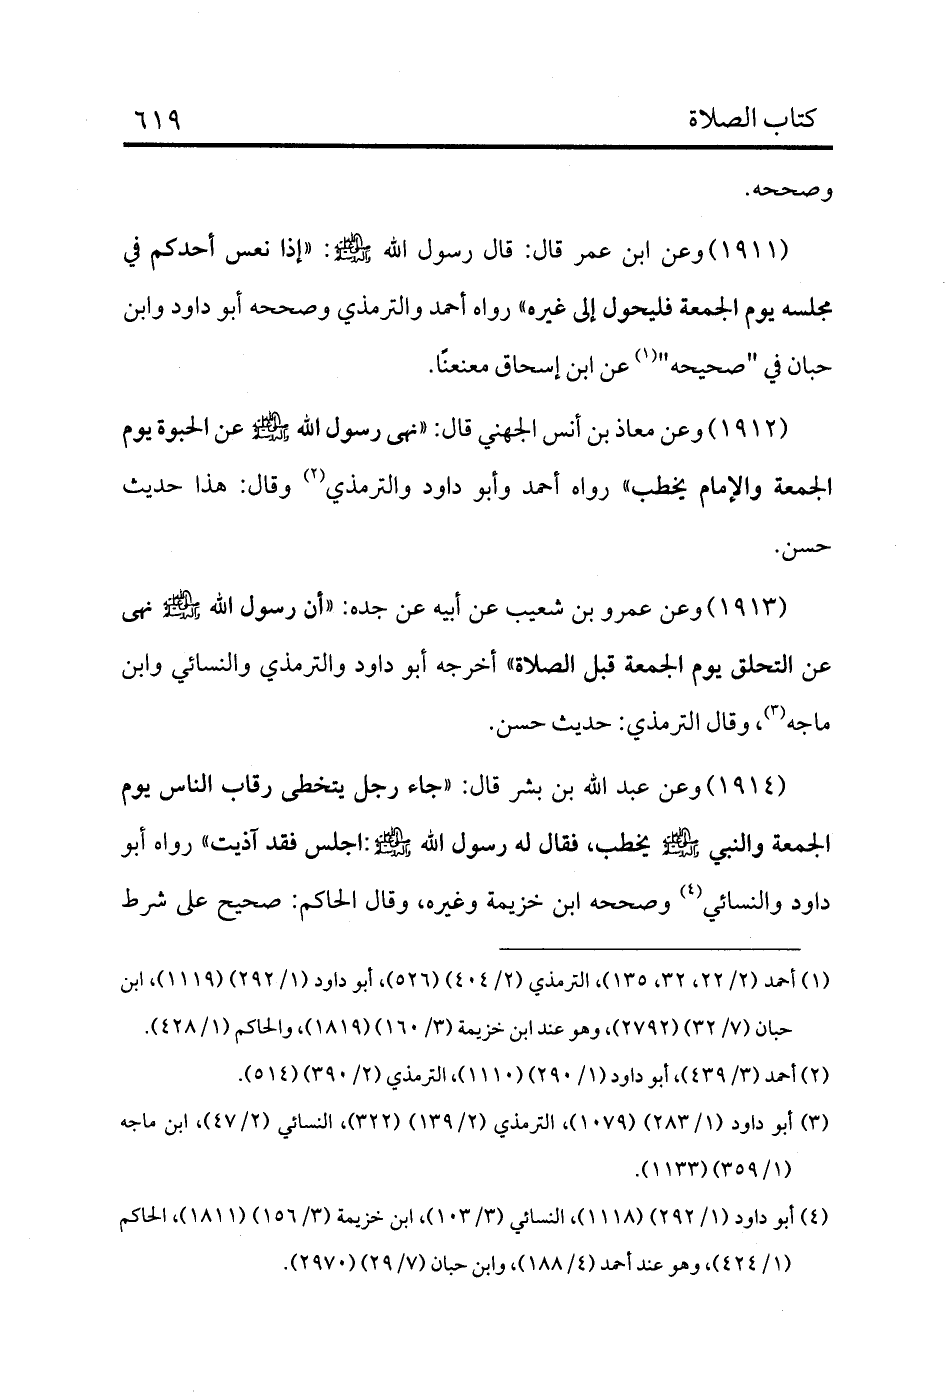 كتاب الصلاة ٦١٩
وصححه.
(١٩١١) وعن ابن عمر قال: قال رسول الله ﷺ: «إذا نعس أحدكم في
مجلسه يوم الجمعة فليحول إلى غيره» رواه أحمد والترمذي وصححه أبو داود وابن
حبان في "صحيحه"(١) عن ابن إسحاق معنعنًا.
(١٩١٢) وعن معاذ بن أنس الجهني قال: «نهى رسول الله ﷺ عن الحبوة يوم
الجمعة والإمام يخطب» رواه أحمد وأبو داود والترمذي(٢) وقال: هذا حديث
حسن.
(١٩١٣) وعن عمرو بن شعيب عن أبيه عن جده: «أن رسول الله ﷺ نهى
عن التحلق يوم الجمعة قبل الصلاة» أخرجه أبو داود والترمذي والنسائي وابن
ماجه(٣)، وقال الترمذي: حديث حسن.
(١٩١٤) وعن عبد الله بن بشر قال: «جاء رجل يتخطى رقاب الناس يوم
الجمعة والنبي ﷺ يخطب، فقال له رسول الله ﷺ:اجلس فقد آذيت» رواه أبو
داود والنسائي(٤) وصححه ابن خزيمة وغيره، وقال الحاكم: صحيح على شرط
(١) أحمد (٢/ ٢٢، ٣٢، ١٣٥)، الترمذي (٢/ ٤٠٤) (٥٢٦)، أبو داود (١/ ٢٩٢) (١١١٩)، ابن
حبان (٧/ ٣٢) (٢٧٩٢)، وهو عند ابن خزيمة (٣/ ١٦٠) (١٨١٩)، والحاكم (١/ ٤٢٨).
(٢) أحمد (٣/ ٤٣٩)، أبو داود (١/ ٢٩٠) (١١١٠)، الترمذي (٢/ ٣٩٠) (٥١٤).
(٣) أبو داود (١/ ٢٨٣) (١٠٧٩)، الترمذي (٢/ ١٣٩) (٣٢٢)، النسائي (٢/ ٤٧)، ابن ماجه
(١/ ٣٥٩) (١١٣٣).
(٤) أبو داود (١/ ٢٩٢) (١١١٨)، النسائي (٣/ ١٠٣)، ابن خزيمة (٣/ ١٥٦) (١٨١١)، الحاكم
(١/ ٤٢٤)، وهو عند أحمد (٤/ ١٨٨)، وابن حبان (٧/ ٢٩) (٢٩٧٠).